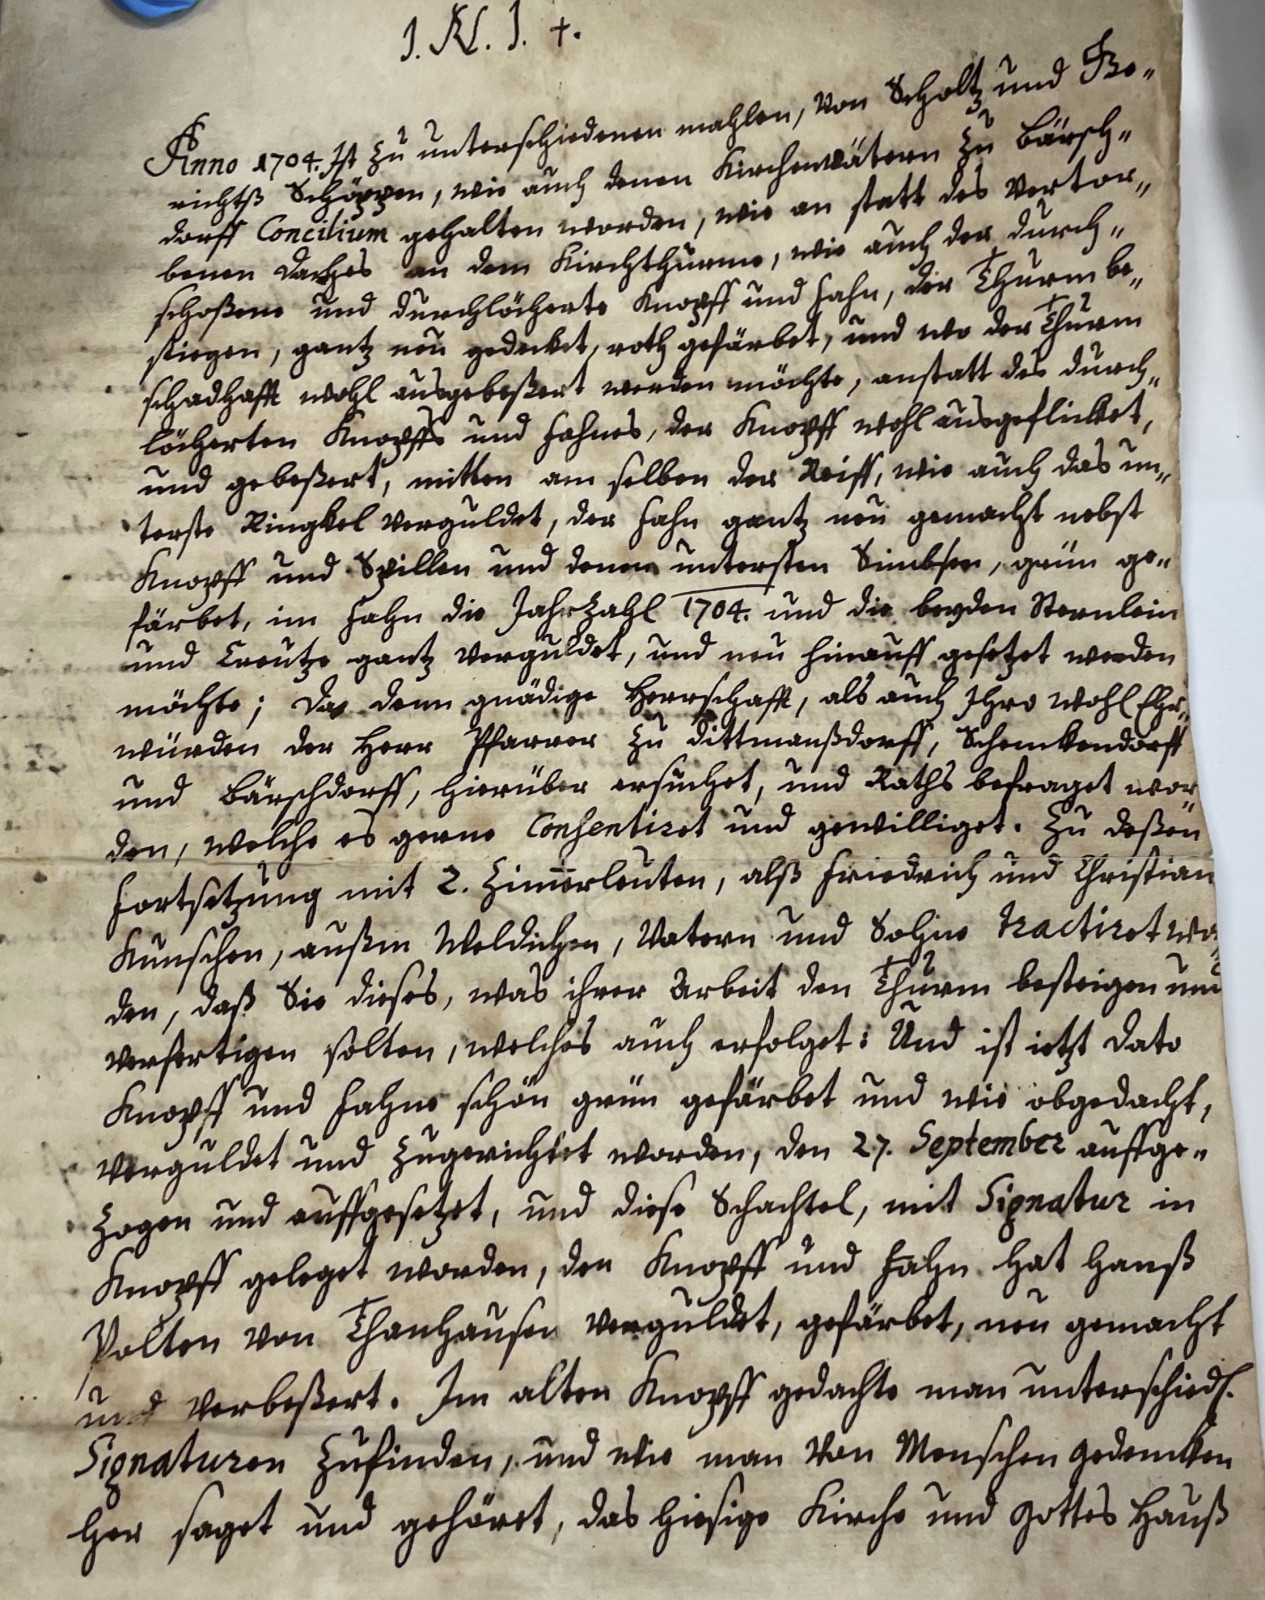 J. N. J. †.
Anno 1704. Ist zu unterschiedenen mahlen, von Scholtz und Ge„
richtß Schöppen, wie auch denen Kirchenvätern zu Bärsch„
dorff Concilium gehalten worden, wie an statt des verdor„
benen daches an dem Kirchthurme, wie auch der durch„
schoßene und durchlöcherte Knopff und fahn, der Thurm be„
stiegen, gantz neu gedecket, roth gefärbet, und wo der Thurm
schadhafft wohl ausgebeßert werden möchte, anstatt des durch„
löcherten Knopffs und fahnes, der Knopff wohl ausgeflicket,
und gebeßert, mitten am selben der Reiff, wie auch das un„
terste Ringkel verguldet, der fahn gantz neu gemacht nebst
Knopff und Spillen und denen untersten Simbsen, grün ge„
färbet, im fahn die Jahrzahl 1704. und die beyden Sternlein
und Creutze gantz verguldet, und neu hinauff gesetzet werden
möchte; Da denn gnädige Herrschafft, als auch Ihro Wohl Ehr„
würden der Herr Pfarrer zu Dittmanßdorff, Schenckendorff
und Bärschdorff, hierüber ersuchet, und Raths befraget wor„
den, welche es gerne Consentiret und gewilliget. Zu deßen
fortsetzung mit 2. Zimerleuten, alß friedrich und Christian
Kunschen, außm Weldichen, Vatern und Sohne tractiret wor
den, daß Sie dieses, was ihrer Arbeit den Thurm besteigen und
verfertigen solten, welches auch erfolget: Und ist ietzt dato
Knopff und fahne schön grün gefärbet und wie obgedacht,
verguldet und zugerichtet worden, den 27. September auffge„
zogen und auffgesetzet, und diese Schachtel, mit Signatur in
Knopff geleget worden, den Knopff und fahn hat Hanß
Polten von Thanhausen verguldet, gefärbet, neu gemacht
und verbeßert. Im alten Knopff gedachte man unterschiedl.
Signaturen zufinden, und wie man von Menschen gedencken
her saget und gehöret, das hiesige Kirche und Gottes Hauß